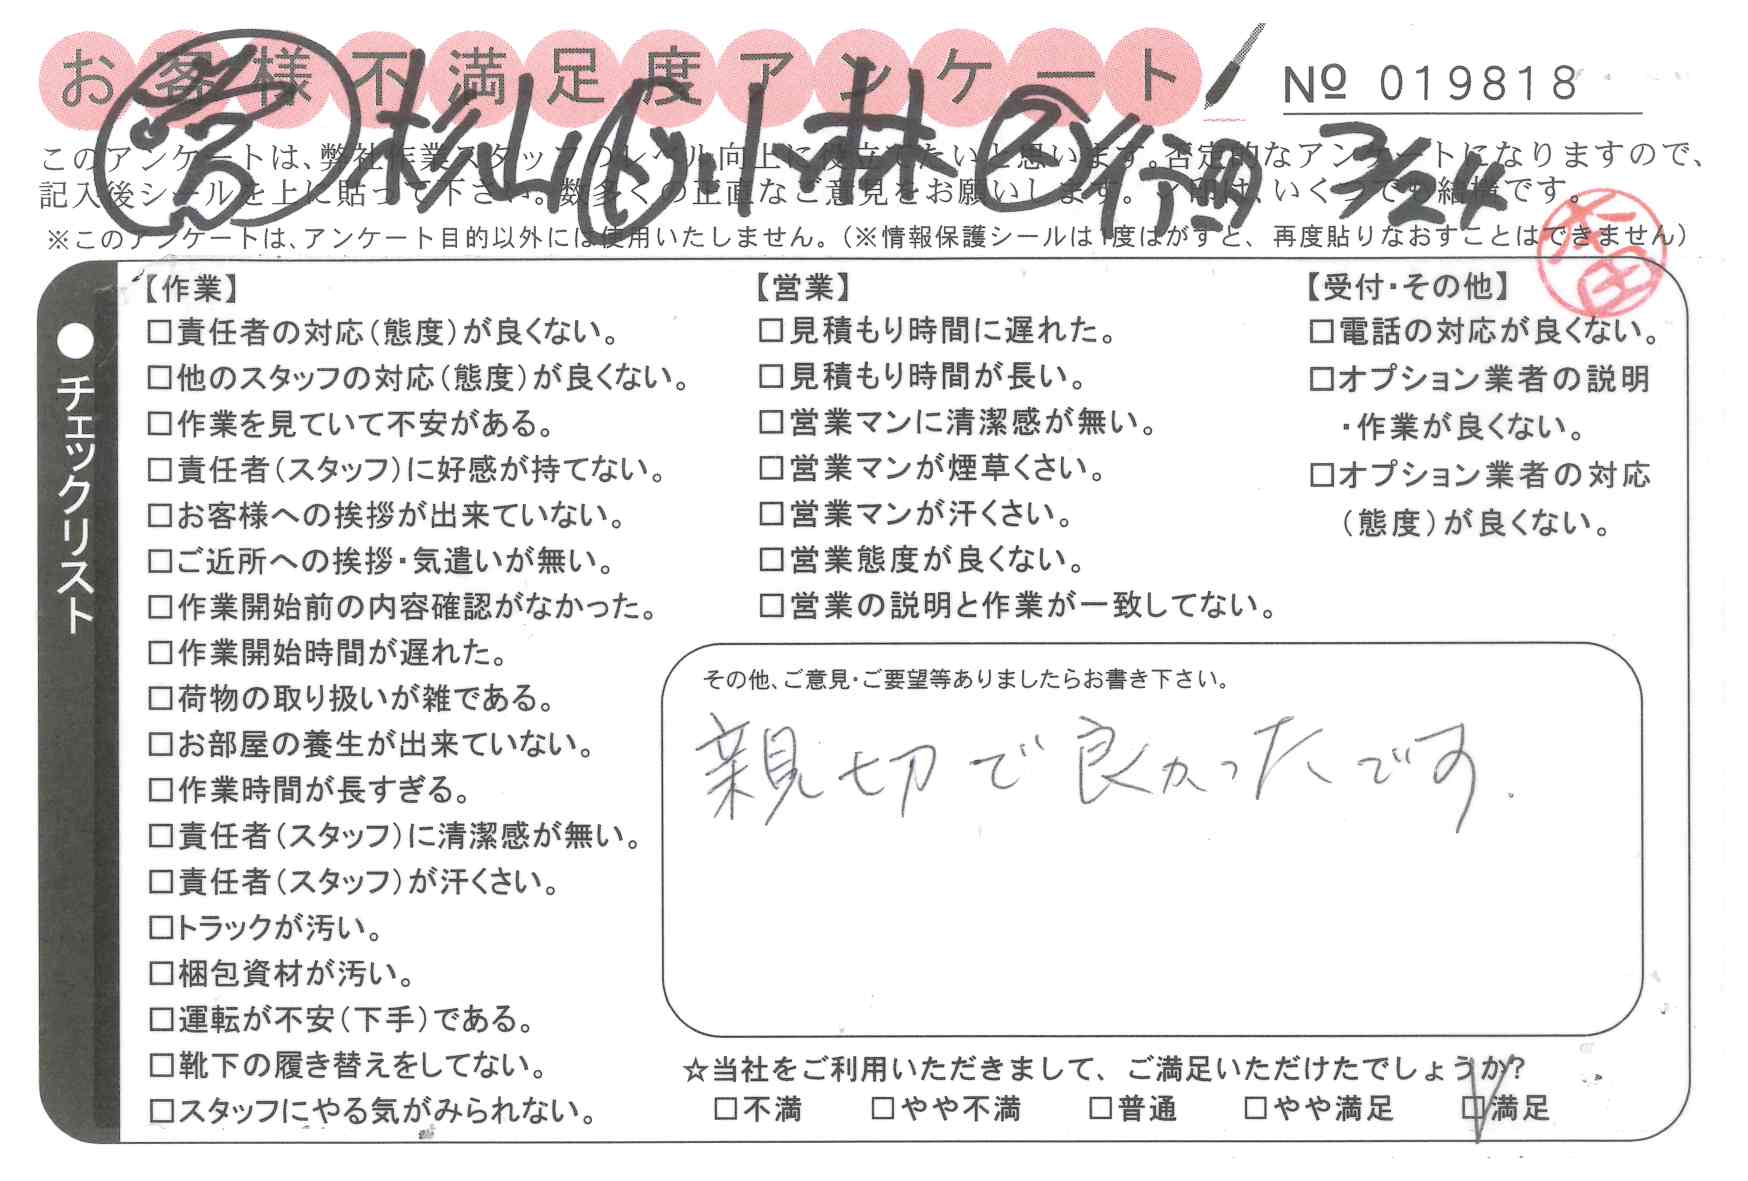 お客様不満足度アンケート
№ 019818
㊂杉山㋣小林㋙行酒 3/24
このアンケートは、弊社作業スタッフのレベル向上に役立てたいと思います。否定的なアンケートになりますので、
記入後シールを上に貼って下さい。数多くの正直なご意見をお願いします。レ印は、いくつでも結構です。
※このアンケートは、アンケート目的以外には使用いたしません。(※情報保護シールは1度はがすと、再度貼りなおすことはできません)
●チェックリスト
【作業】
□責任者の対応(態度)が良くない。
□他のスタッフの対応(態度)が良くない。
□作業を見ていて不安がある。
□責任者(スタッフ)に好感が持てない。
□お客様への挨拶が出来ていない。
□ご近所への挨拶・気遣いが無い。
□作業開始前の内容確認がなかった。
□作業開始時間が遅れた。
□荷物の取り扱いが雑である。
□お部屋の養生が出来ていない。
□作業時間が長すぎる。
□責任者(スタッフ)に清潔感が無い。
□責任者(スタッフ)が汗くさい。
□トラックが汚い。
□梱包資材が汚い。
□運転が不安(下手)である。
□靴下の履き替えをしてない。
□スタッフにやる気がみられない。
【営業】
□見積もり時間に遅れた。
□見積もり時間が長い。
□営業マンに清潔感が無い。
□営業マンが煙草くさい。
□営業マンが汗くさい。
□営業態度が良くない。
□営業の説明と作業が一致してない。
【受付・その他】
□電話の対応が良くない。
□オプション業者の説明
・作業が良くない。
□オプション業者の対応
(態度)が良くない。
その他、ご意見・ご要望等ありましたらお書き下さい。
親切で良かったです.
☆当社をご利用いただきまして、ご満足いただけたでしょうか?
□不満 □やや不満 □普通 □やや満足 □満足